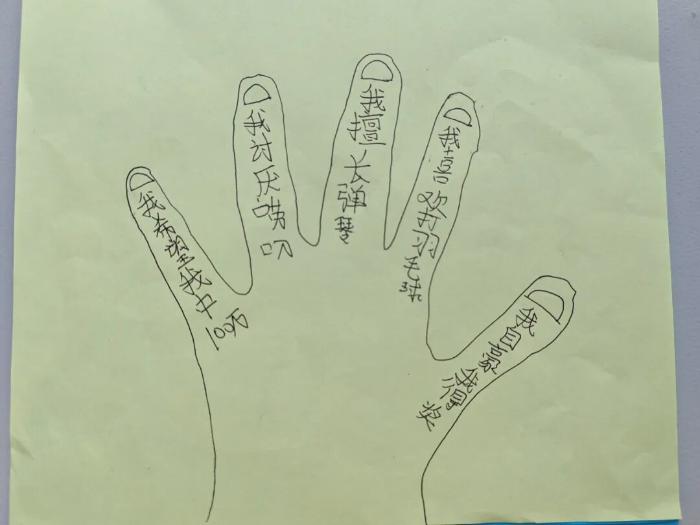 我希望我中100万
我讨厌唠叨
我擅长弹琴
我喜欢打羽毛球
我自豪我得奖